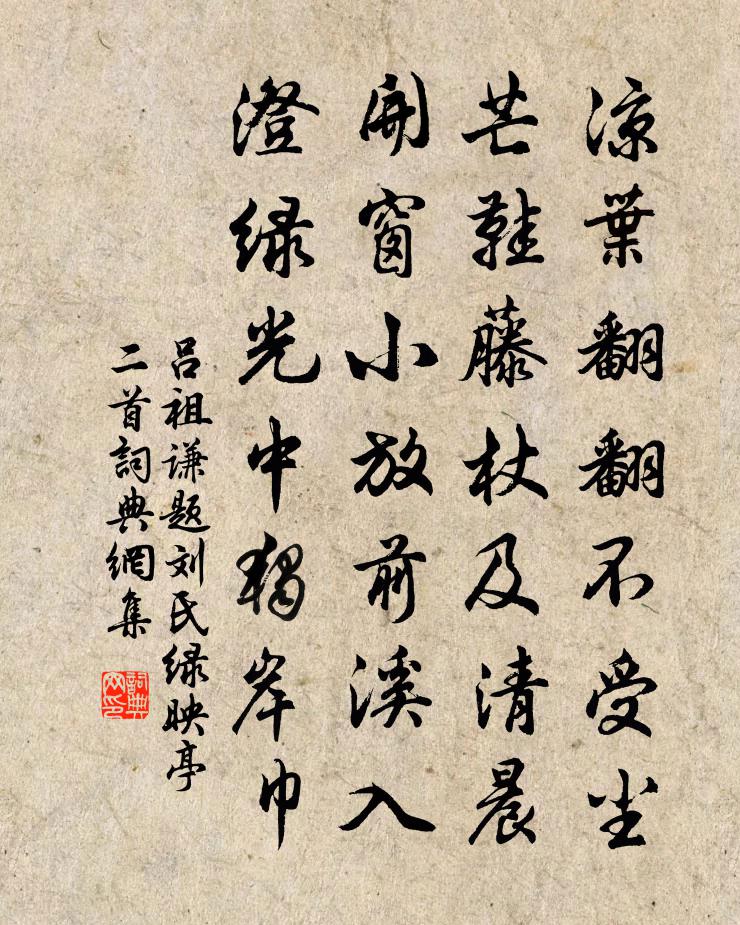 凉葉翻翻不受尘
芒鞋藤杖及清晨
開窗小放前溪入
澄绿光中獨岸巾
吕祖谦题刘氏绿映亭
二首詞典網集
詞典網印